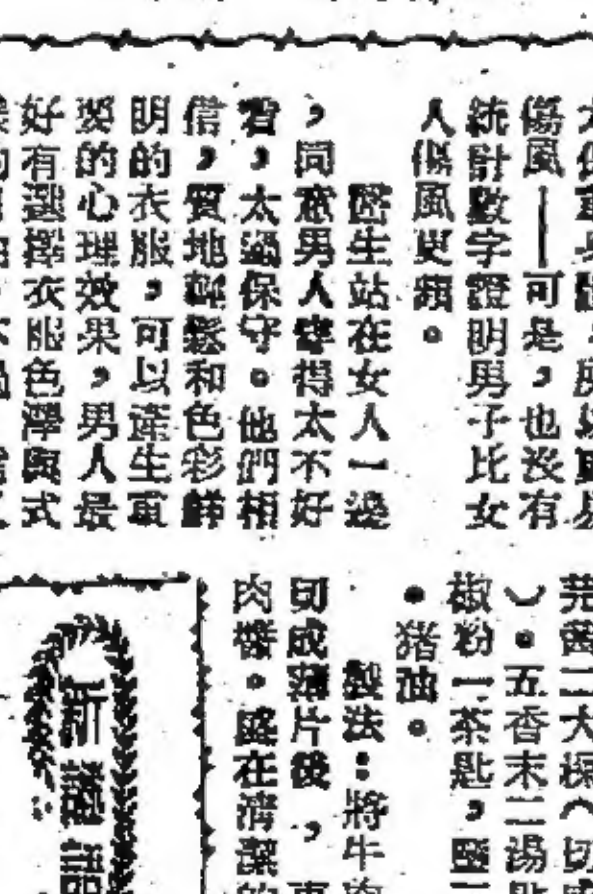 傷風──可是，也沒有
統計數字證明男子比女
人傷風更頻。
醫生站在女人一邊
，同意男人穿得太不好
看，太過保守。他們相
信，質地輕鬆和色彩鮮
明的衣服，可以產生重
要的心理效果，男人最
好有選擇衣服色澤與式
芫茜二大 切
）。五香末二湯
椒粉一茶匙，鹽
。猪油。
製法：將牛
切成薄片後，
肉醬。盛在清潔的
新 語